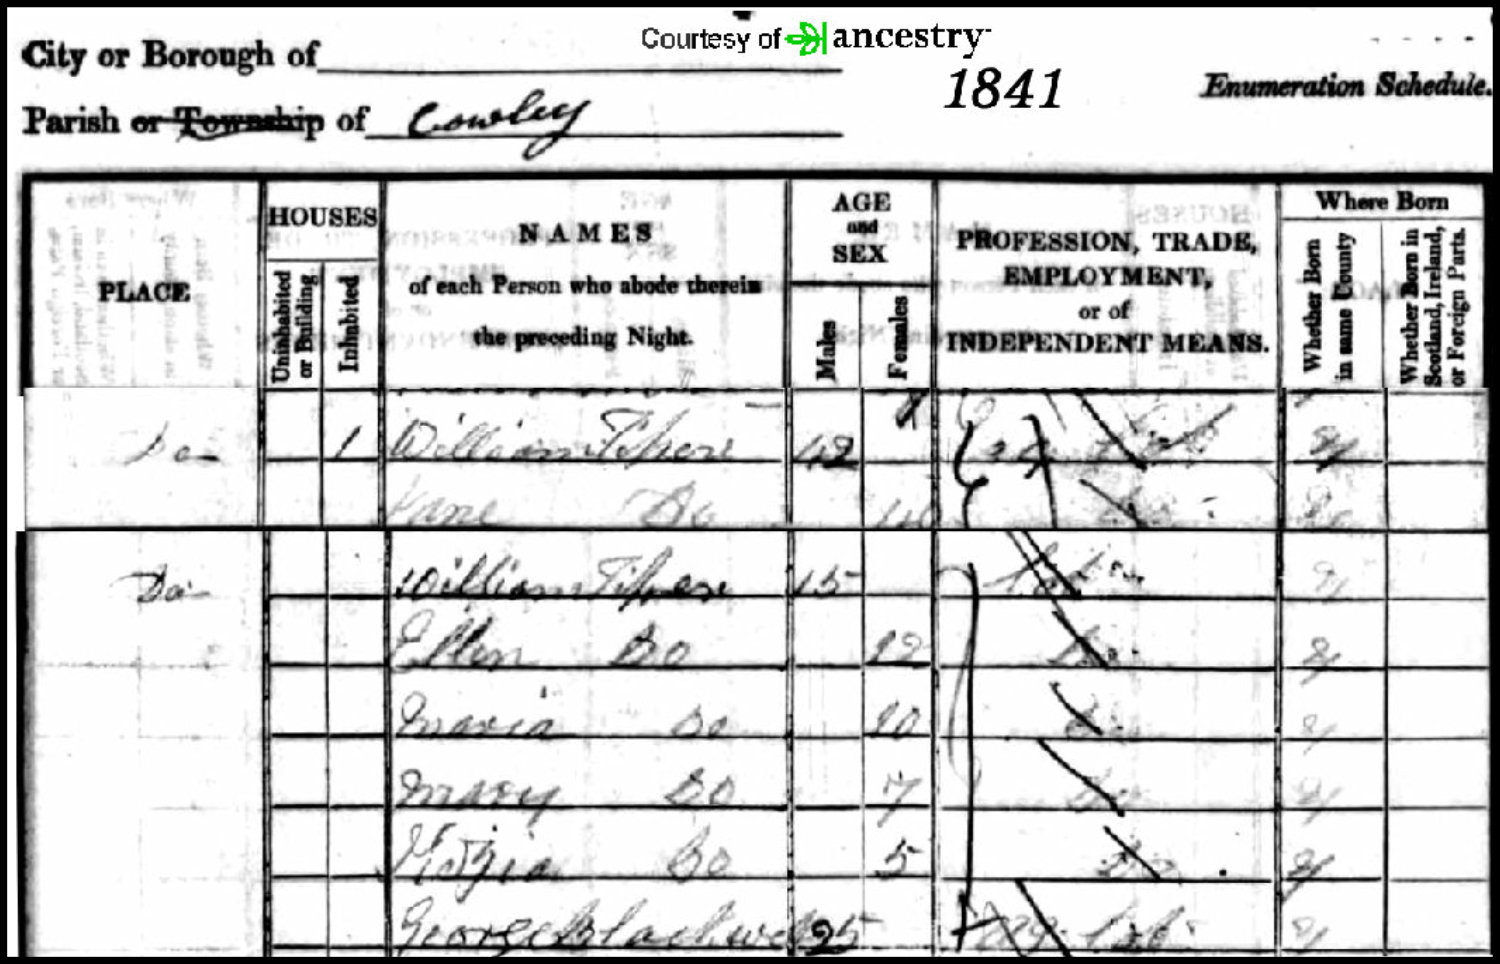 Courtesy of ancestry
City or Borough of
1841
Enumeration Schedule.
Parish or Township of Cowley
PLACE
HOUSES
Uninhabited or Building
Inhabited
NAMES
of each Person who abode therein
the preceding Night.
AGE
and
SEX
Males
Females
PROFESSION, TRADE,
EMPLOYMENT,
or of
INDEPENDENT MEANS.
Where Born
Whether Born in same County
Whether Born in Scotland, Ireland, or Foreign Parts.
Do 1 William 42
Jane Do
Do William 15
Ellen Do 12 Do
Maria Do 10 Do
Mary Do 7 Do
Do 5 Do
George Blackwell 25 Ag Lab